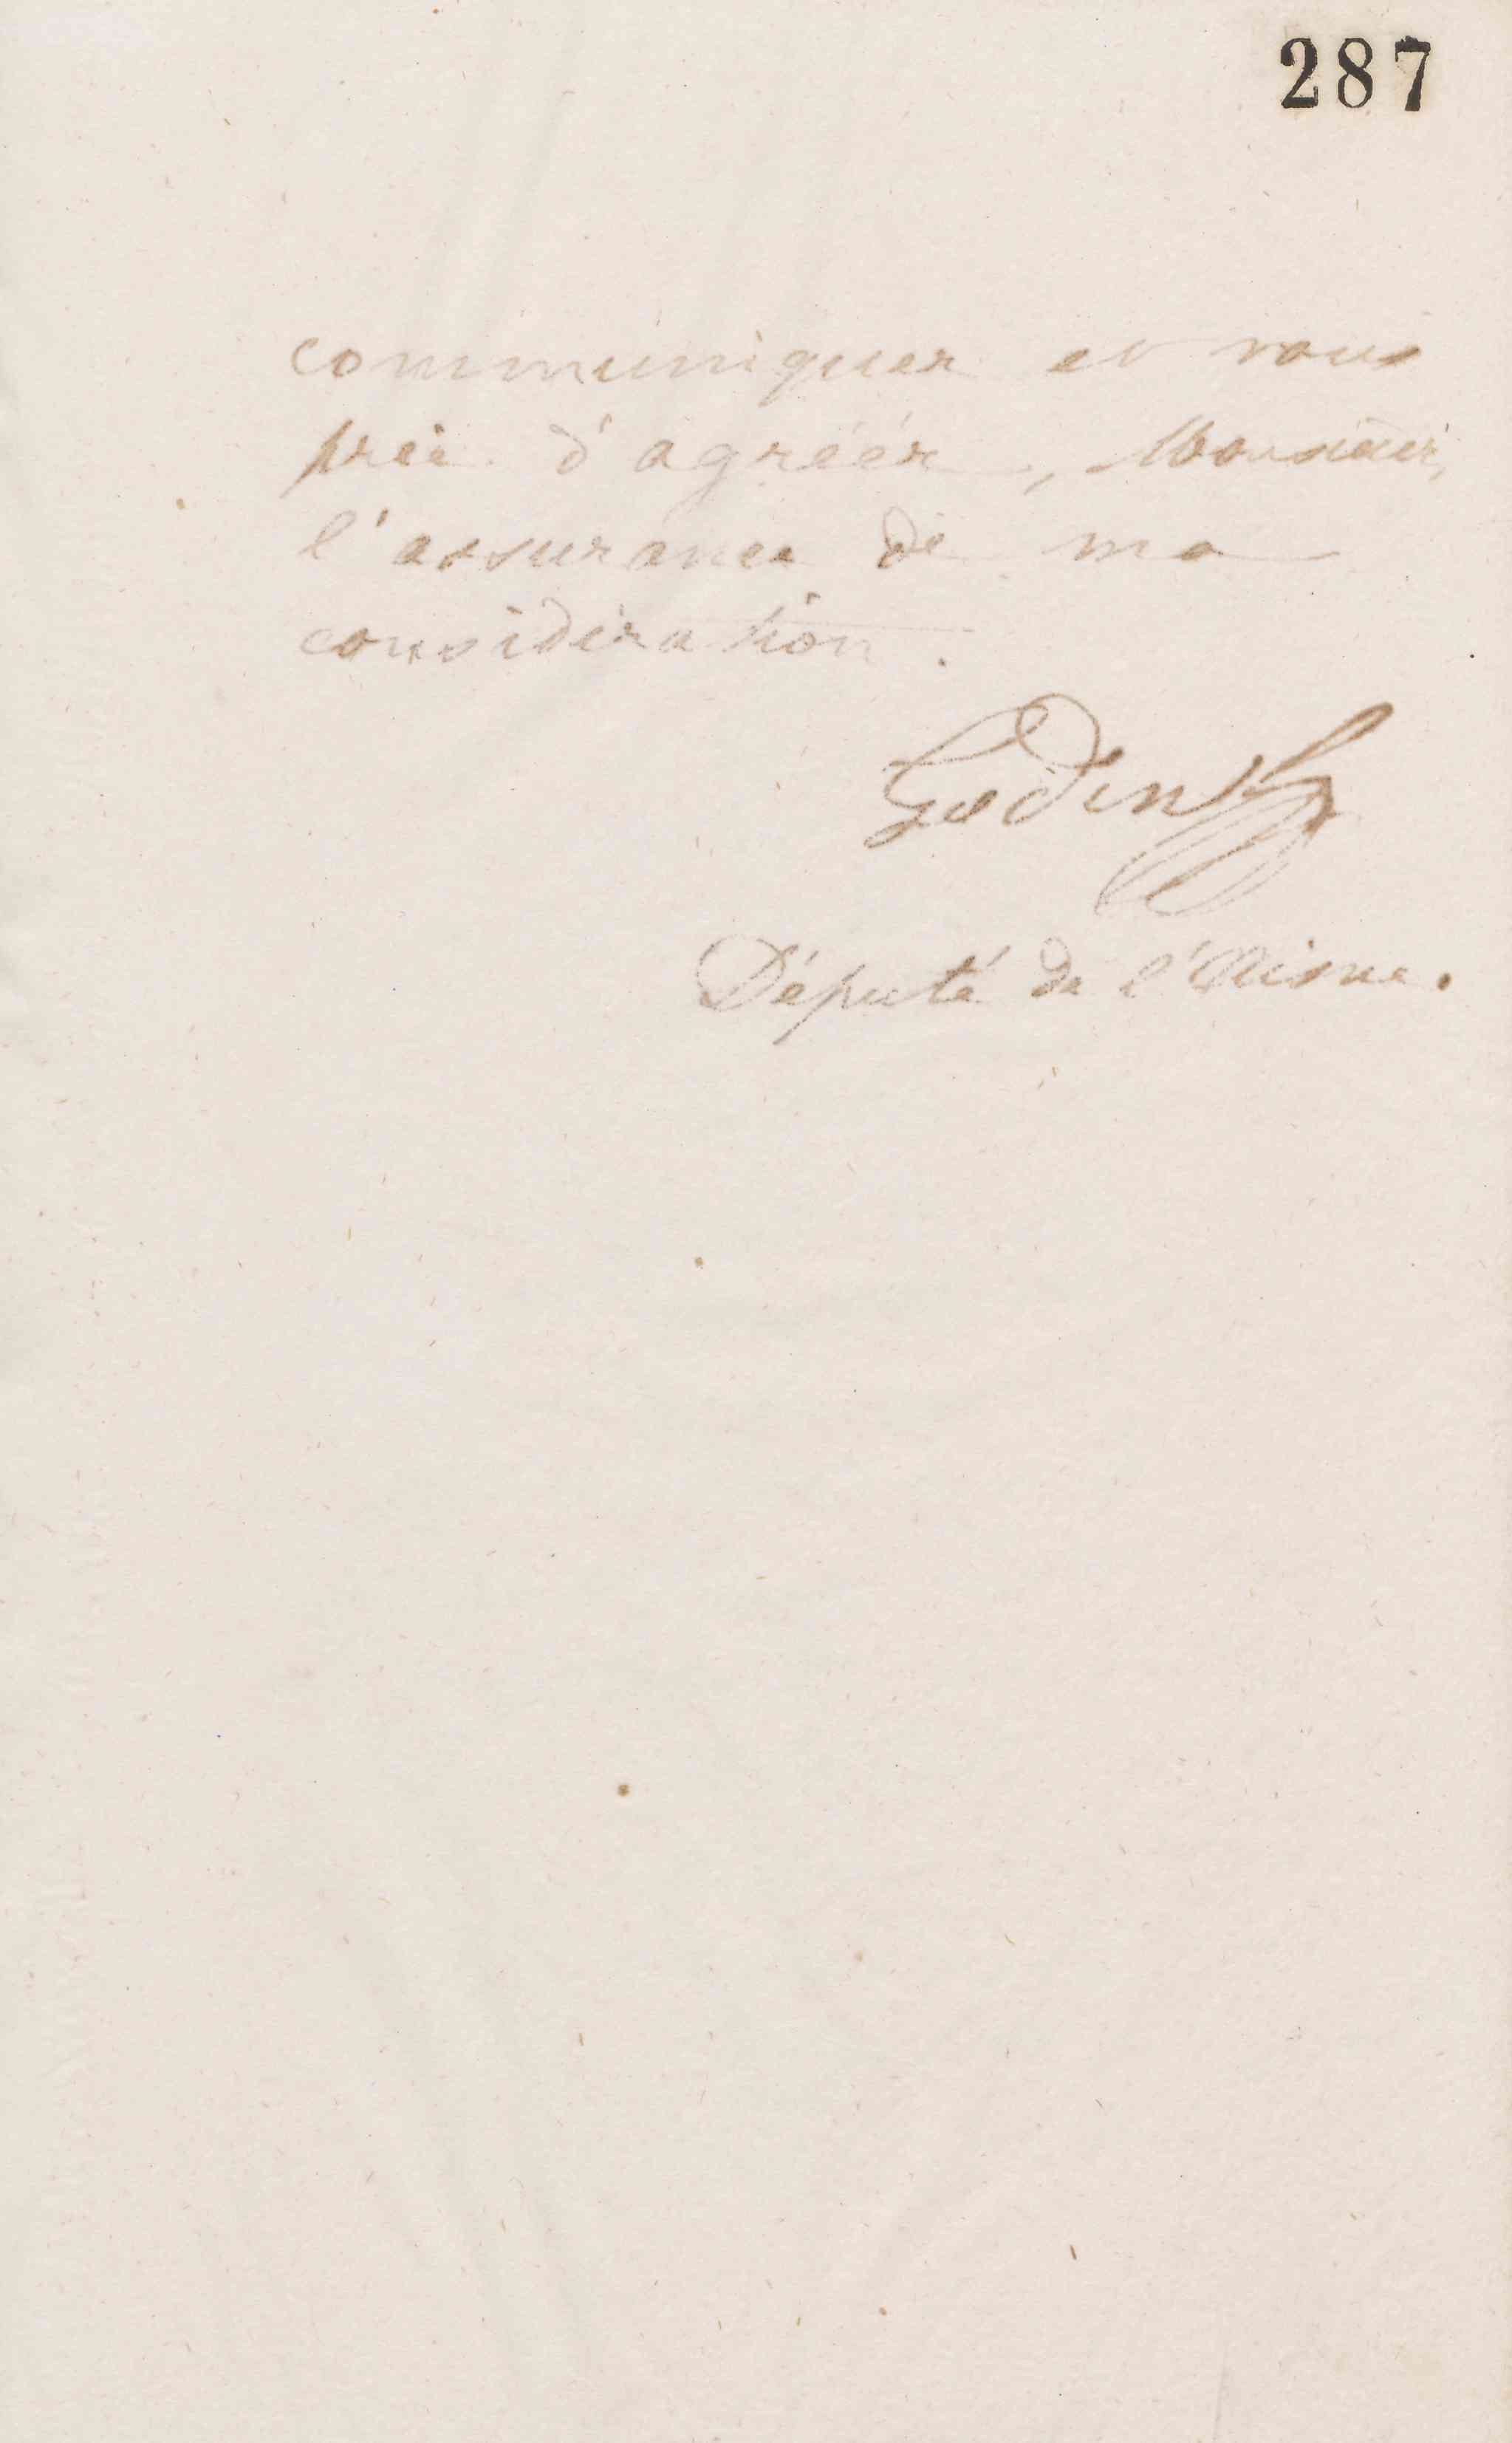 287
communiquer et vous
prie d'agréer, Monsieur,
l'assurance de ma
considération.
Godin
Député de l'Aisne.